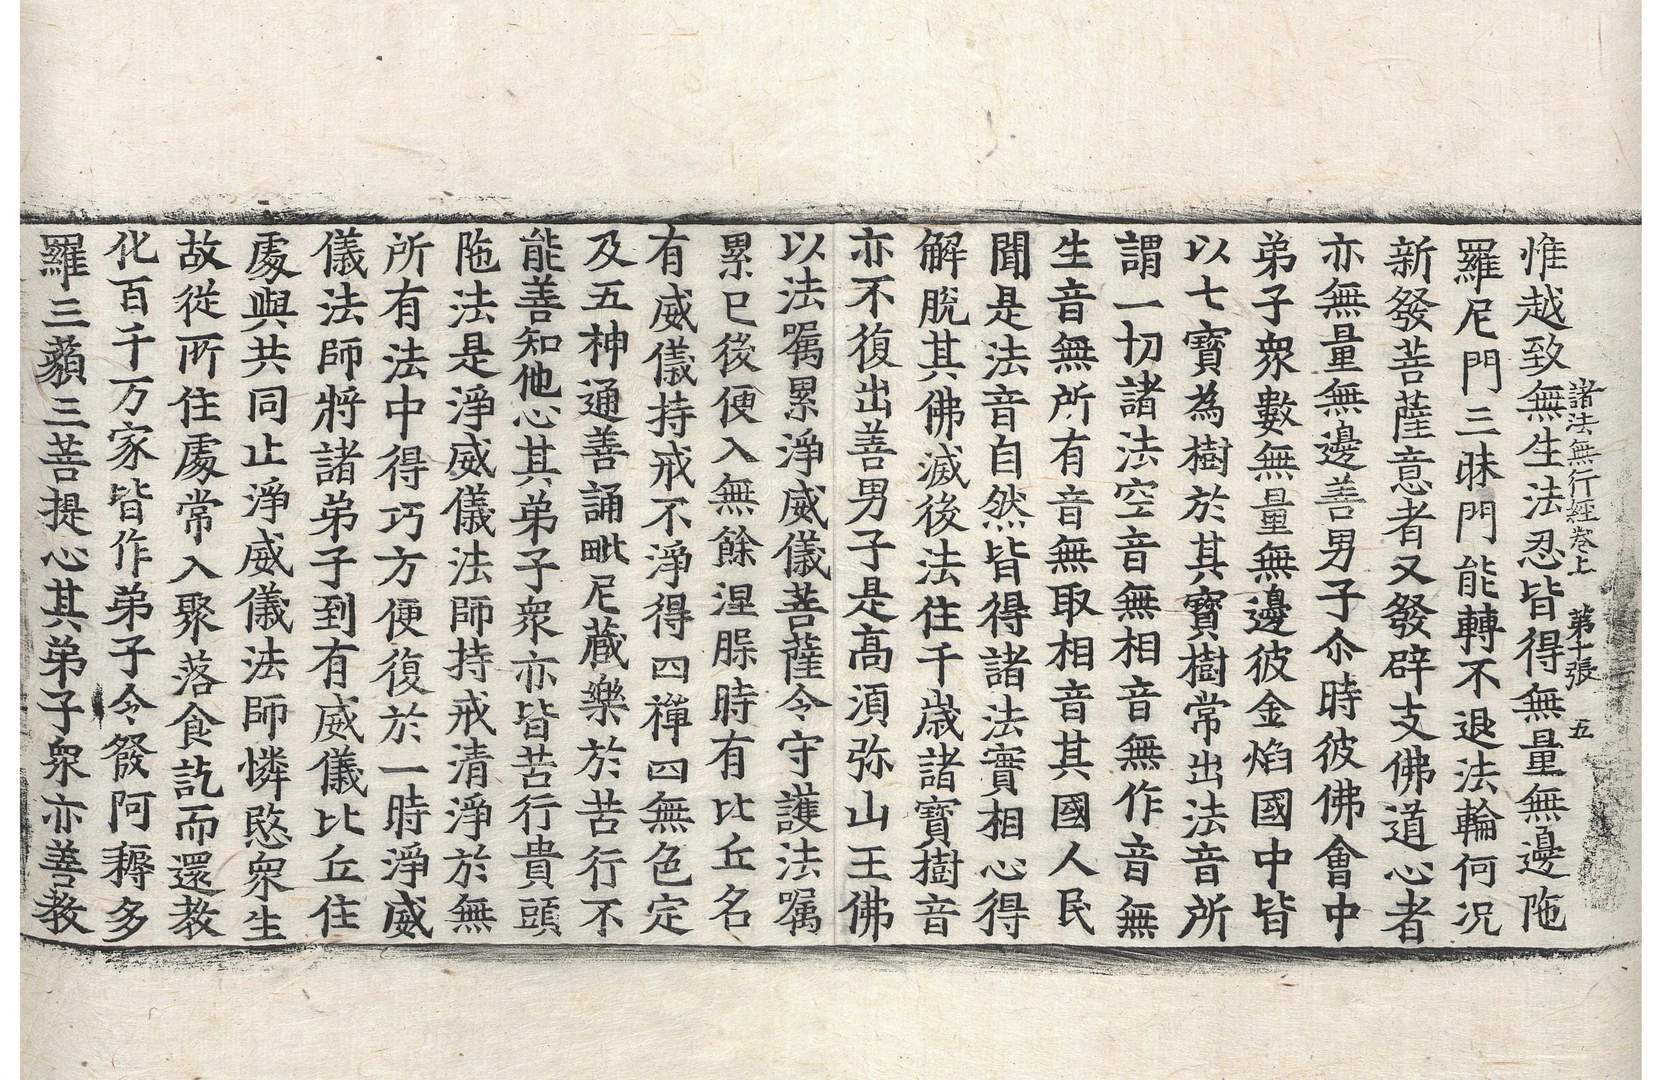 諸法無行經卷上　第十張　五
惟越致無生法忍皆得無量無邊陁
羅尼門三昧門能轉不退法輪何況
新發菩薩意者又發辟支佛道心者
亦無量無邊善男子尒時彼佛會中
弟子衆數無量無邊彼金焰國中皆
以七寶為樹於其寶樹常出法音所
謂一切諸法空音無相音無作音無
生音無所有音無取相音其國人民
聞是法音自然皆得諸法實相心得
解脫其佛滅後法住千歲諸寶樹音
亦不復出善男子是高須弥山王佛
以法囑累淨威儀菩薩令守護法囑
累已後便入無餘涅槃時有比丘名
有威儀持戒不淨得四禪四無色定
及五神通善誦毗尼藏樂於苦行不
能善知他心其弟子衆亦皆苦行貴頭
陁法是淨威儀法師持戒清淨於無
所有法中得巧方便復於一時淨威
儀法師將諸弟子到有威儀比丘住
處與共同止淨威儀法師憐愍衆生
故從所住處常入聚落食訖而還教
化百千万家皆作弟子令發阿耨多
羅三藐三菩提心其弟子衆亦善教